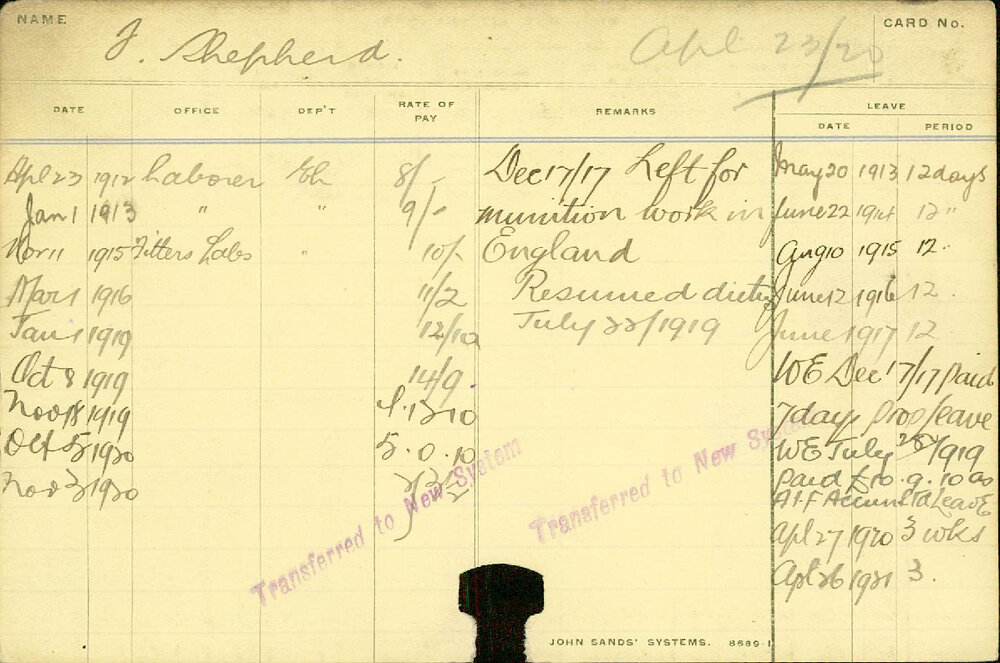 NAME
CARD No.
J. Shepherd.
Apl 23/20
DATE OFFICE DEP'T RATE OF PAY REMARKS LEAVE
DATE PERIOD
Apl 23 1912 Laborer Eh 8/- Dec 17/17 Left for May 20 1913 12 days
Jan 1 1913 " " 9/- munition work in June 22 1914 12 "
Nov 11 1915 Fitters Labs " 10/- England Aug 10 1915 12 "
Mar 1 1916 11/2 Resumed duty June 12 1916 12 .
Jan 1 1919 12/10 July 22/1919 June 1917 12
Oct 8 1919 14/9. WE Dec 17/17 paid
Nov 18 1919 4.13.10 7 days prop leave
Oct 5 1920 5.0.10 WE July 1919
Nov 3 1920 paid £10.9.10 as
AIF Accum Leave
Apl 27 1920 3 wks
Apl 26 1921 3.
Transferred to New System
Transferred to New System
JOHN SANDS' SYSTEMS. 8689-1